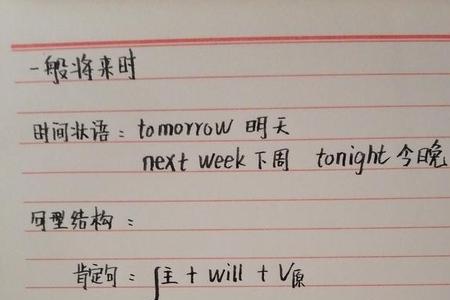 一般将来时
时间状语：tomorrow 明天
next week 下周 tonight 今晚
句型结构：
肯定句：{主 + will + V原